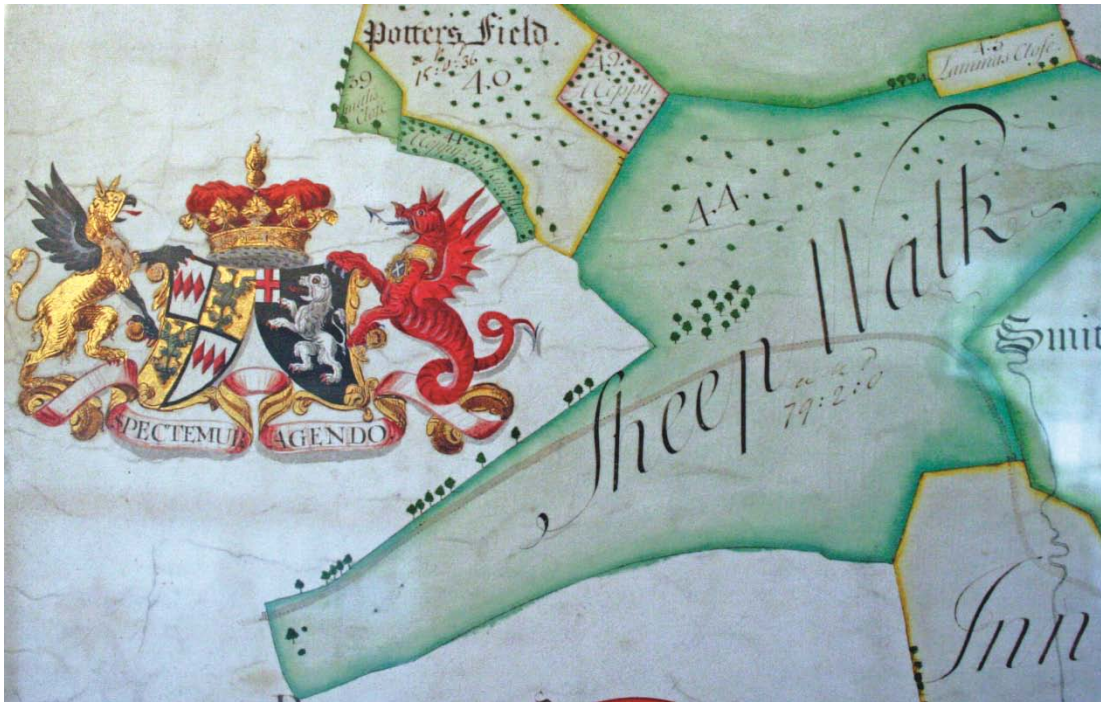 Potters Field.
a r p
40
39
Smiths
Close
42
A Coppy
43
Lammas Close.
44
Sheep Walk
a r p
79:2:0
Smit
SPECTEMUR AGENDO
Inn